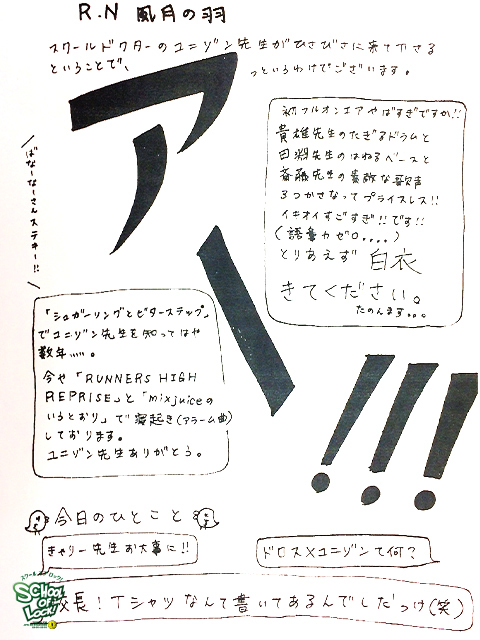 R.N 風月の羽
スクールドクターのユニゾン先生がひさびさに来て下さる
ということで、
っというわけでございます。
ア
ハ
!!!
ばなーなーさんステキー!!
初フルオンエアやばすぎですか!!
貴雄先生のたぎるドラムと
田淵先生のはねるベースと
斎藤先生の素敵な歌声
3つかさなってプライスレス!!
イキオイすごすぎ!!です!!
(語彙力ゼロ....)
とりあえず 白衣
きてください。
たのんます。。。
「シュガーソングとビターステップ」
でユニゾン先生を知ってはや
数年……。
今や「RUNNERS HIGH
REPRISE」と「mix juiceの
いうとおり」で寝起き(アラーム曲)
しております。
ユニゾン先生ありがとう。
今日のひとこと
きゃりー先生お大事に!!
ドロス×ユニゾンて何?
校長!Tシャツなんて書いてあるんでしたっけ(笑)
スクールオブロック!
SCHOOL
OF
LOCK!